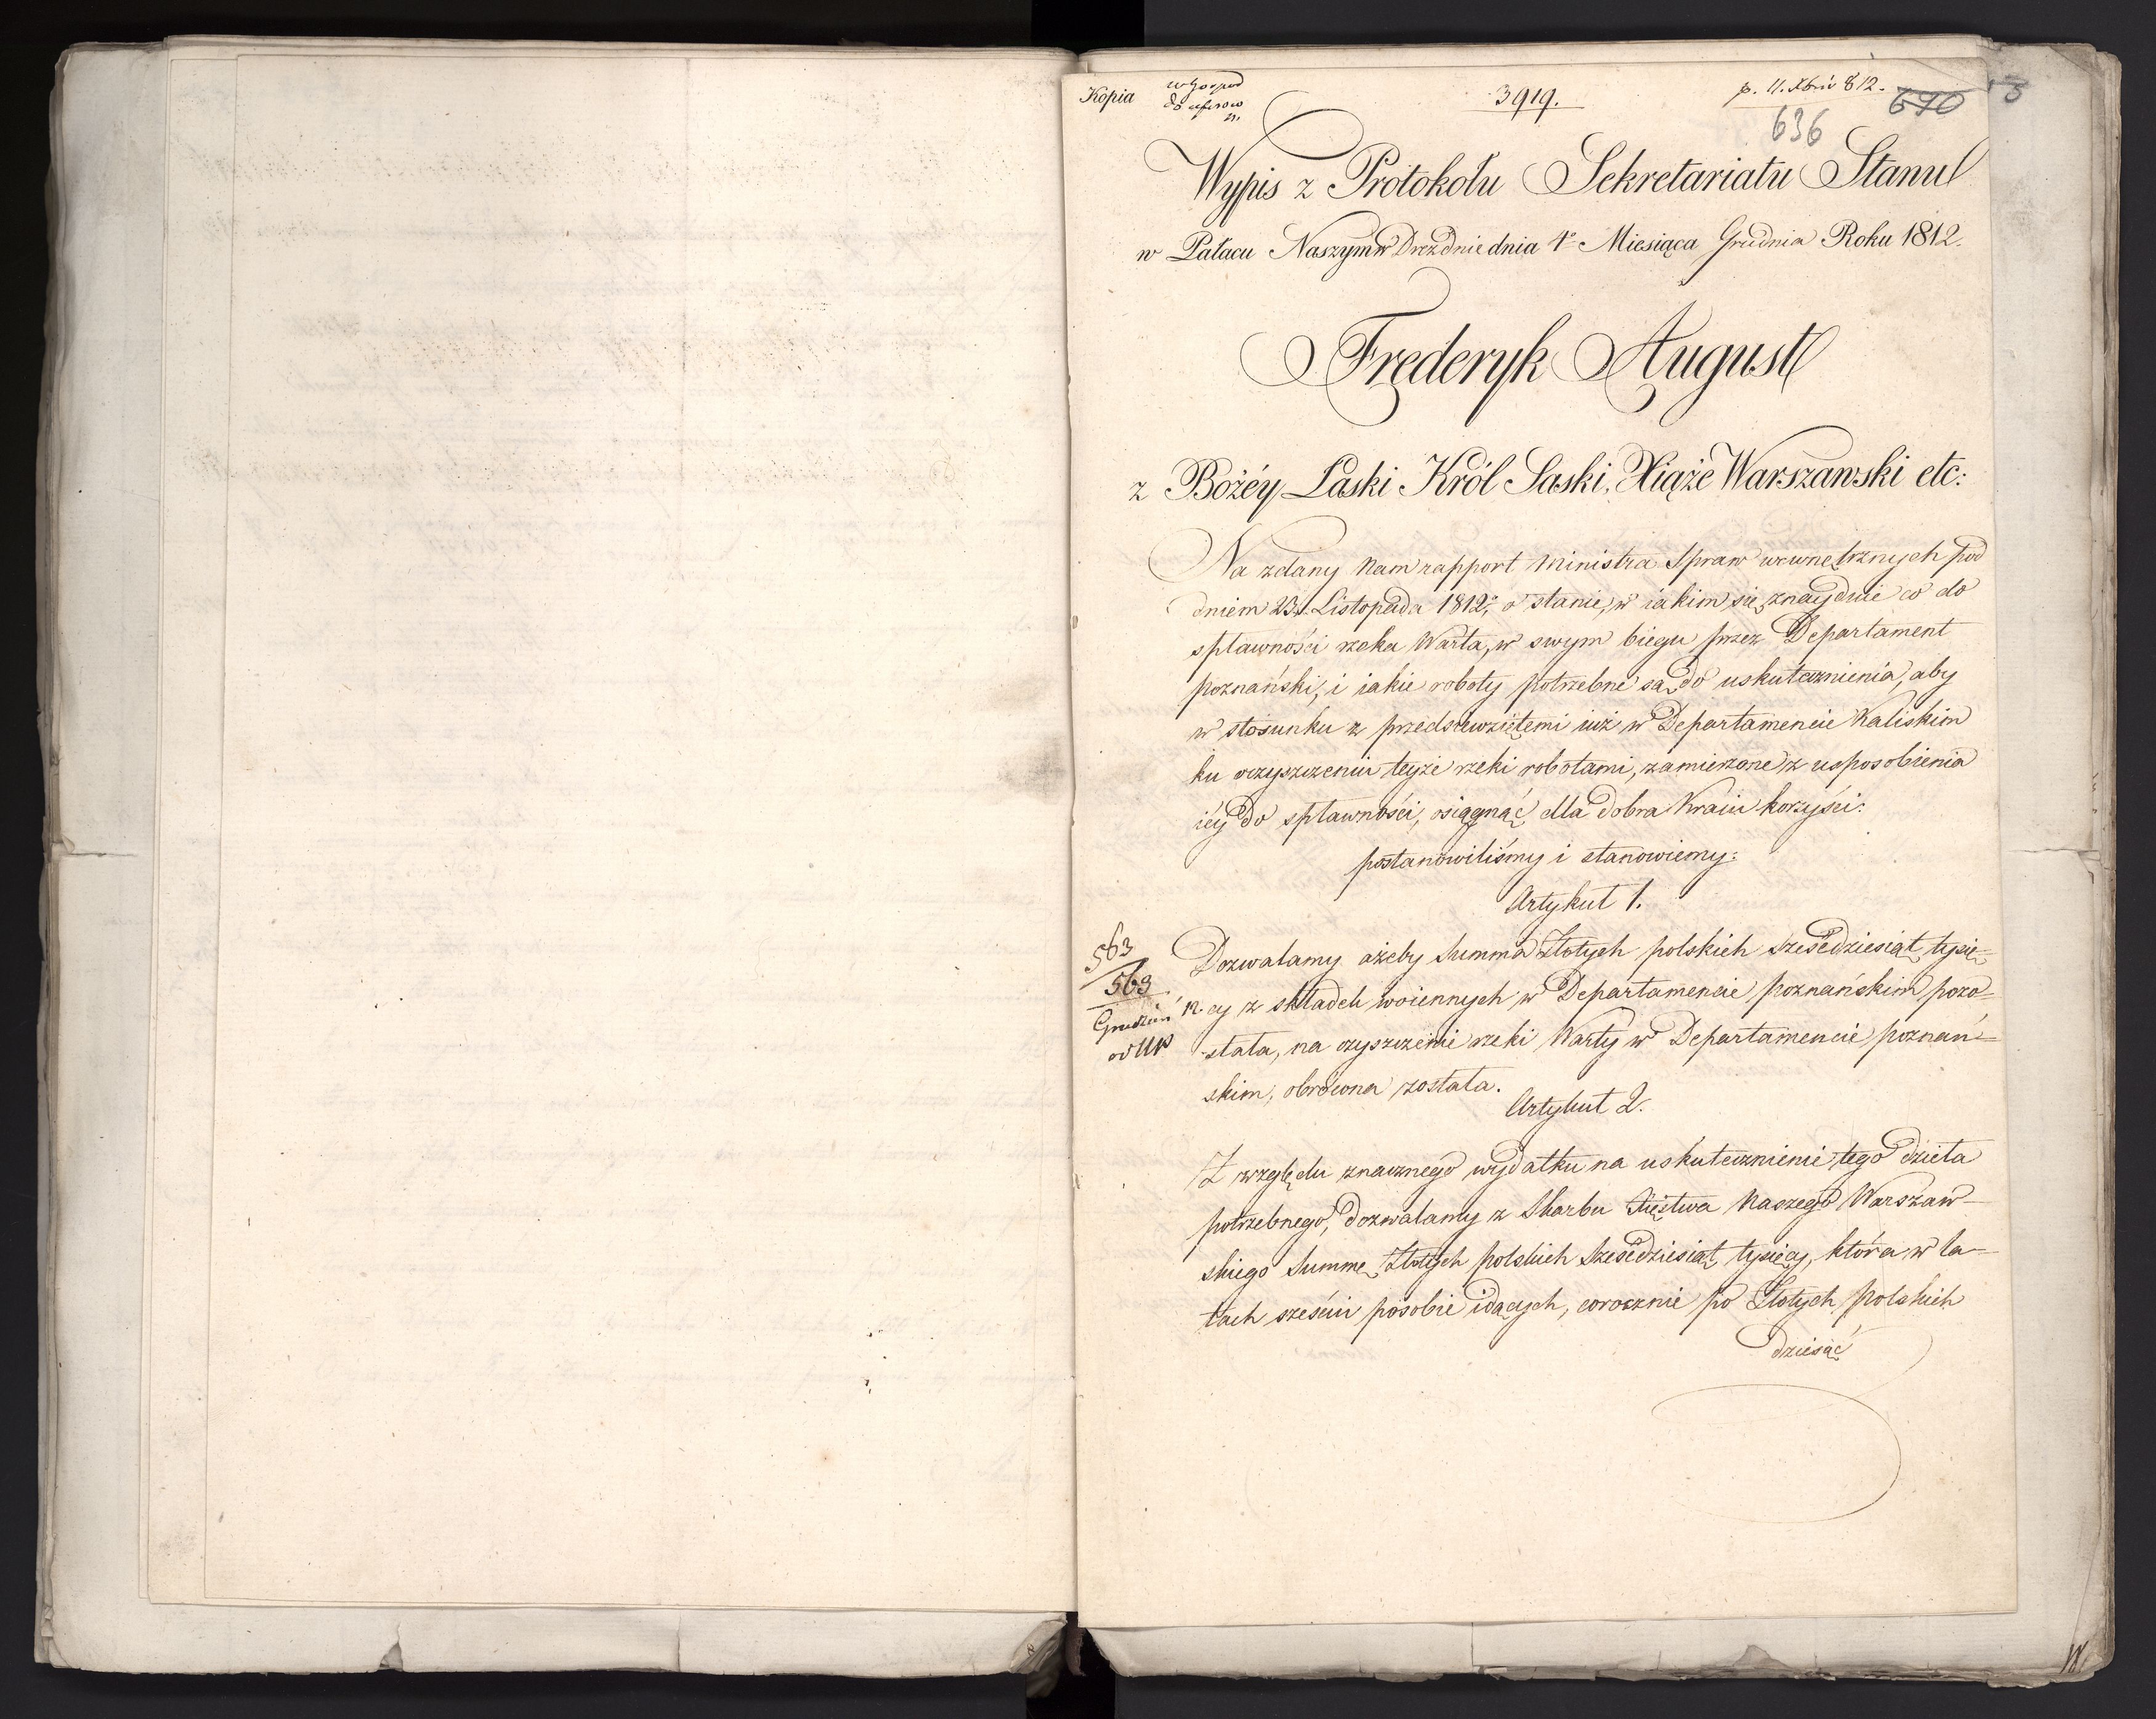 Kopia
3919.
p. 11. Xbris 812.
670
3
636
Wypis z Protokołu Sekretariatu Stanu
w Pałacu Naszym w Dreźdnie dnia 1º Miesiąca Grudnia Roku 1812.
Frederyk August
z Bożéy Łaski Król Saski, Xiąże Warszawski etc:
Na zdany Nam rapport Ministra Spraw wewnętrznych pod
dniem 23. Listopada 1812. o stanie, w iakim się znayduie co do
spławności rzeka Warta, w swym biegu przez Departament
poznański, i iakie roboty potrzebne są do uskutecznienia, aby
w stosunku z przedsięwziętemi iuż w Departamencie Kaliskim
ku oczyszczeniu teyże rzeki robotami, zamierzone z usposobienia
iéy do spławności, osiągnąć dla dobra Kraiu korzyści:
postanowiliśmy i stanowiemy:
Artykuł 1.
563
563
Grudzień 12.
od UW
Dozwalamy ażeby Summa Złotych polskich sześćdziesiąt tysię=
cy z składek woiennych w Departamencie poznańskim pozo=
stała, na czyszczenie rzeki Warty w Departamencie poznań=
skim, obrócona została.
Artykuł 2.
Z względu znacznego wydatku na uskutecznienie tego dzieła
potrzebnego, dozwalamy z Skarbu Xięstwa Naszego Warszaw=
skiego Summę Złotych polskich sześćdziesiąt tysięcy, która w la=
tach sześciu posobie idących, corocznie po Złotych polskich
dziesięć